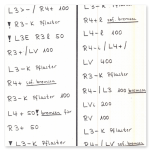 L3>-/ R4+ 100
R3-K Pflaster
! L3E R3E 50
R3+/LV 100
L3-K Pflaster
R4+ auf bremsen
R3-K Pflaster 100
L4+ 50! bremsen für
R3+ 50
! L3-K Pflaster
R3-K Pflaster
R4+E auf bremsen
L4-E 100
R4-L/L4+/
LV 400
R3-K Pflaster
R4-/L3 100 bremsen
LVi 200
RV 100
L3-K Pflaster
R4-/L3 auf bremsen